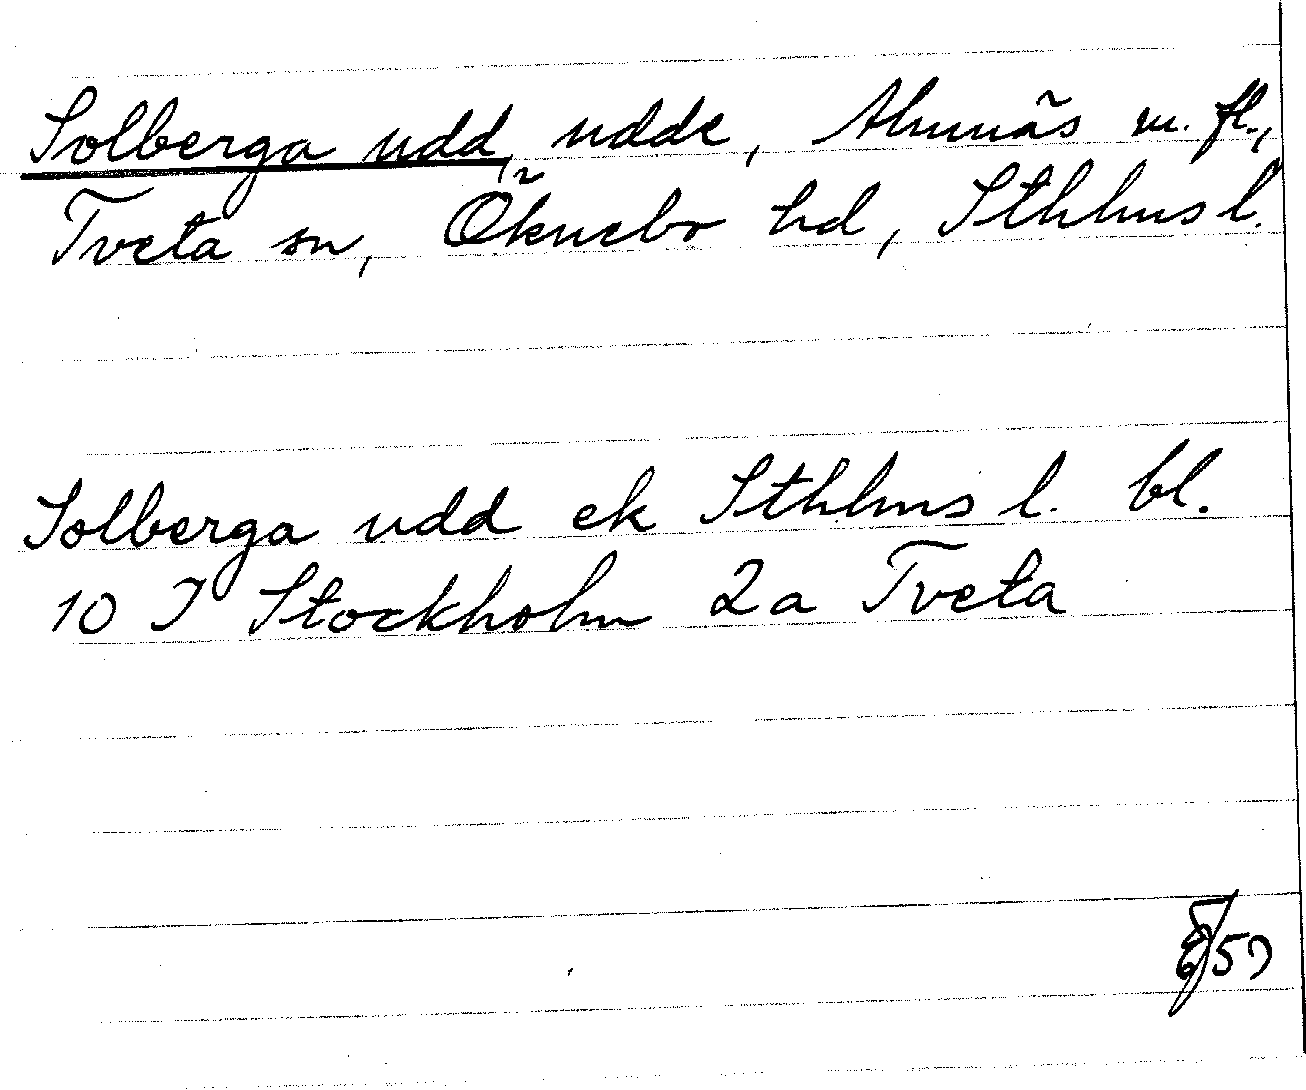 Solberga udd, udde, Almnäs m. fl.,
Tveta sn, Öknebo hd, Sthlms l.
Solberga udd ek Sthlms l. bl.
10 I Stockholm 2a Tveta